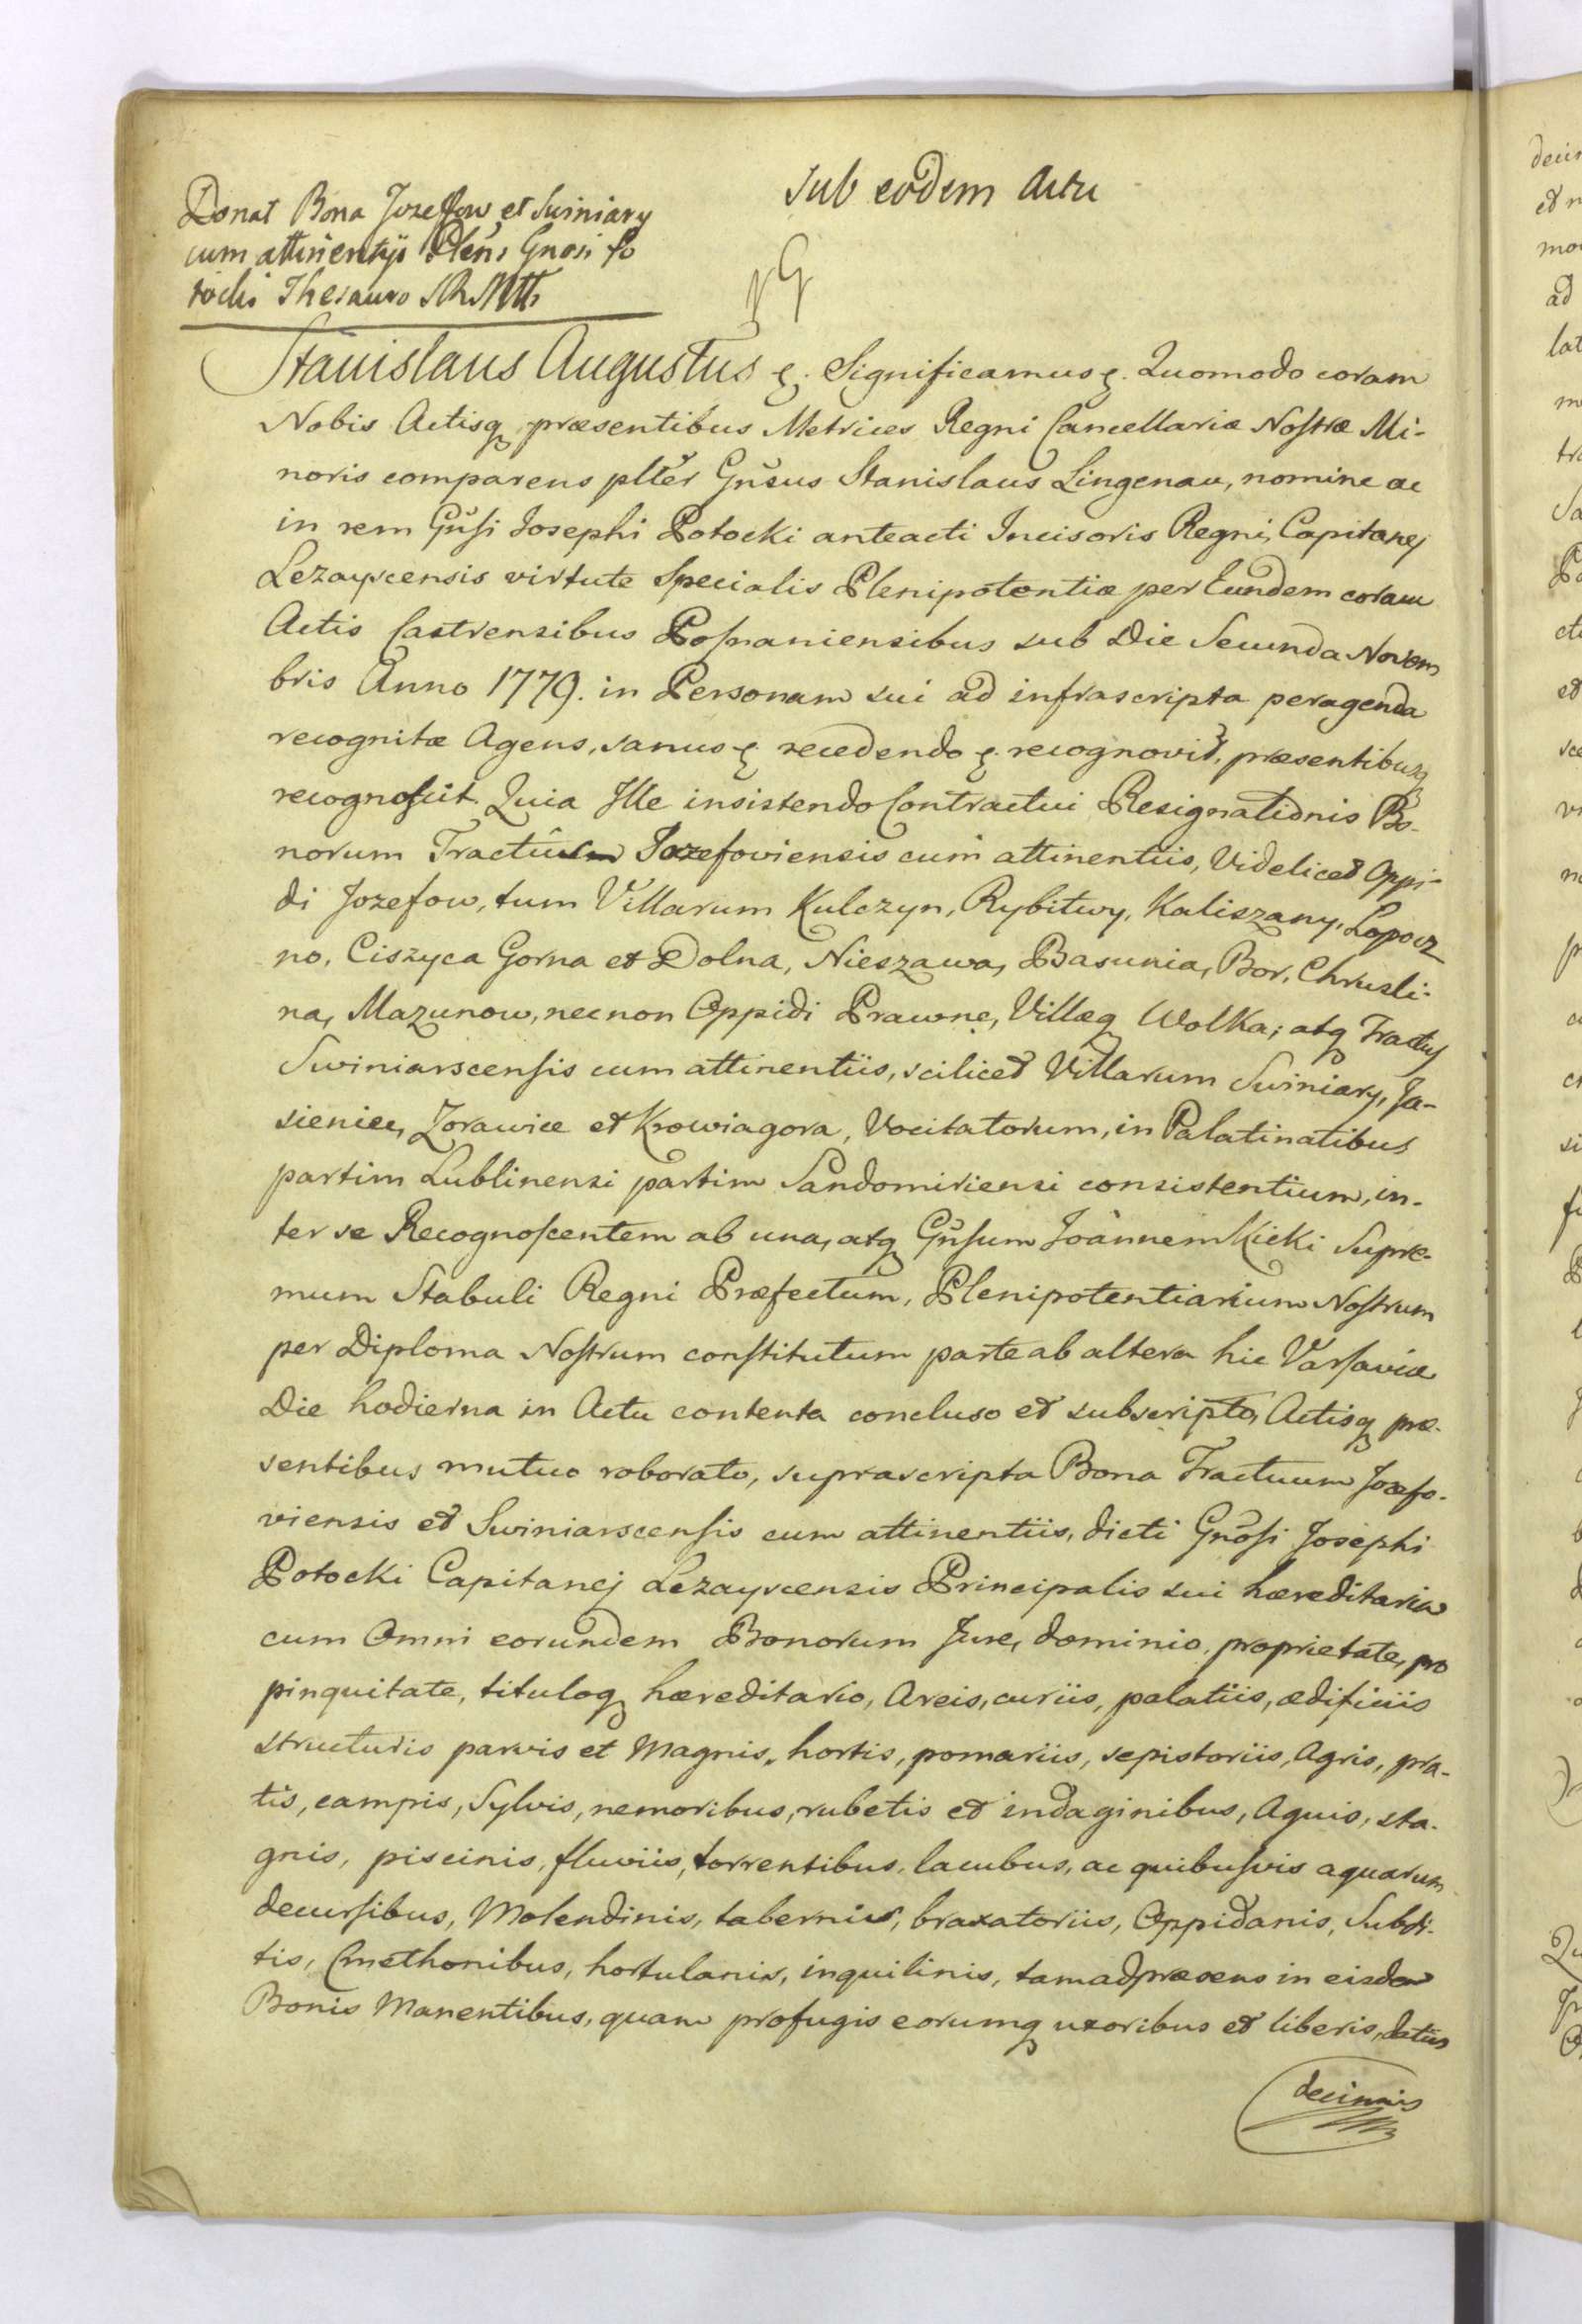 Sub eodem Actu
Donat Bona Jozeffow et Swiniary
cum attinentijs Plens Gnosi Po
tocki Thesauro SRMttis
Stanislaus Augustus &. Significamus &. Quomodo coram
Nobis Actisq præsentibus Metrices Regni Cancellariæ Nostræ Mi-
noris comparens plter Gnsus Stanislaus Lingenau, nomine ac
in rem Gnsi Josephi Potocki anteacti Incisoris Regni, Capitanej
Lezayscensis virtute Specialis Plenipotentiæ per Eundem coram
Actis Castrensibus Posnaniensibus sub Die Secunda Novem
bris Anno 1779. in Personam sui ad infrascripta peragenda
recognitæ Agens, sanus &. recedendo &. recognovit, præsentibusq
recognoscit. Quia Ille insistendo Contractui Resignationis Bo-
norum Tractuum Jozefoviensis cum attinentiis, Videliced Oppi-
di Jozefow, tum Villarum Kulczyn, Rybitwy, Kaliszany, Lopocz
no, Ciszyca Gorna et Dolna, Nieszawa, Basunia, Bor, Chrusli-
na, Mazunow, necnon Oppidi Prawne, Villæq Wolka; atq Tractus
Swiniarscensis cum attinentiis, sciliced Villarum Swiniary, Ja-
sieniec, Zorawice et Krowiagora, Vocitatorum, in Palatinatibus
partim Lublinensi partim Sandomiriensi consistentium, in-
ter se Recognoscentem ab una, atq Gnsum Joannem Kicki Supre-
mum Stabuli Regni Præfectum, Plenipotentiarium Nostrum
per Diploma Nostrum constitutum parte ab altera hic Varsaviæ
Die hodierna in Actu contenta concluso et subscripto, Actisq præ-
sentibus mutuo roborato, suprascripta Bona Tractuum Jozefo-
viensis et Swiniarscensis cum attinentiis, dicti Gnosi Josephi
Potocki Capitanej Lezayscensis Principalis sui hæreditaria
cum Omni eorundem Bonorum Jure, dominio, proprietate, pro
pinquitate, tituloq hæreditario, Areis, curiis, palatiis, ædificiis
structuris parvis et Magnis, hortis, pomariis, sepistoriis, Agris, pra-
tis, campis, Sylvis, nemoribus, rubetis et indaginibus, Aquis, sta-
gnis, piscinis, fluviis, torrentibus, lacubus, ac quibusvis aquarum
decursibus, Molendinis, tabernis, braxatoriis, Oppidanis, Subdi-
tis, Cmethonibus, hortulanis, inquilinis, tam ad præsens in eisdem
Bonis Manentibus, quam profugis eorumq uxoribus et liberis, datiis
decimis